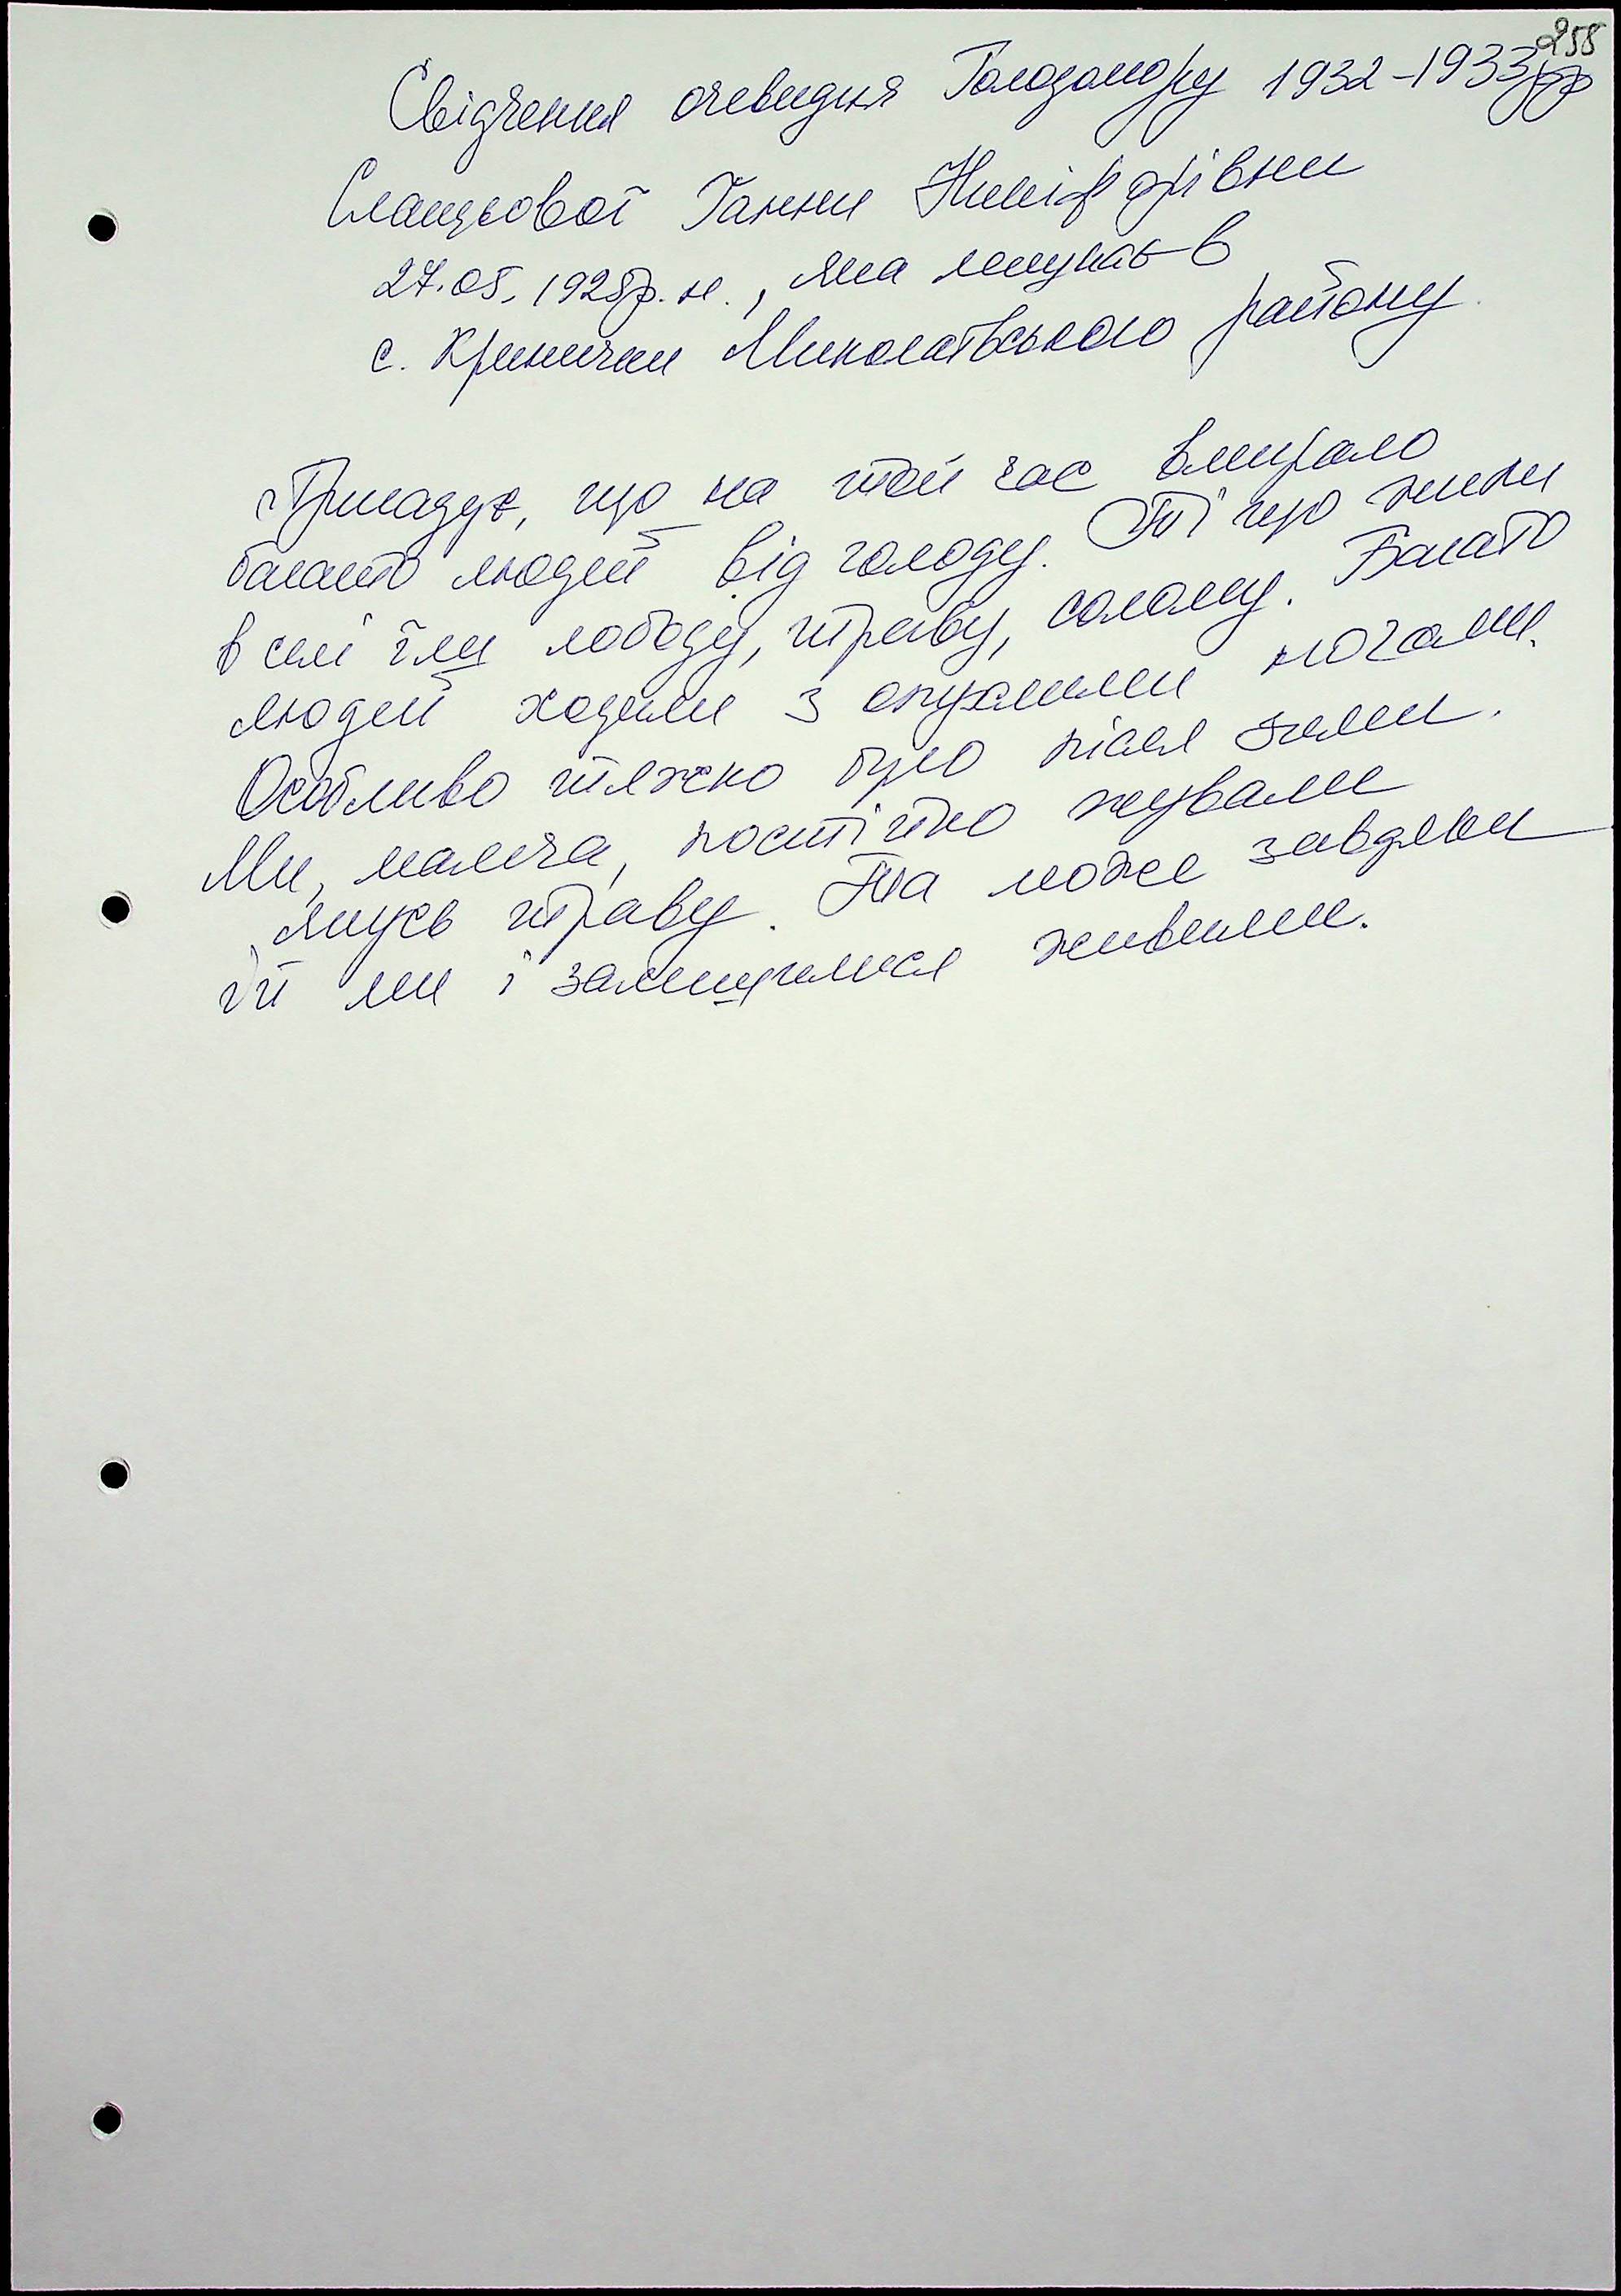 258
Свідчення очевидця Голодомору 1932-1933рр
Сланцьової Ганни Никифорівни
27.05.1928р.н., яка мешкає в
с. Кринички Миколаївського району
Пригадує, що на той час вмирало
багато людей від голоду. Ті що жили
в селі їли лободу, траву, солому. Багато
людей ходили з опухлими ногами.
Особливо тяжко було після зими.
Ми, малеча, постійно жували
якусь траву. Та може завдяки
їй ми і залишилися живими.